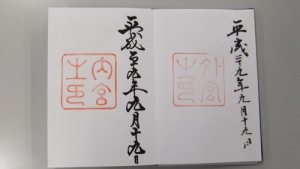 平成二十九年九月十九日
外宮
之印
平成二十九年九月十九日
内宮
之印